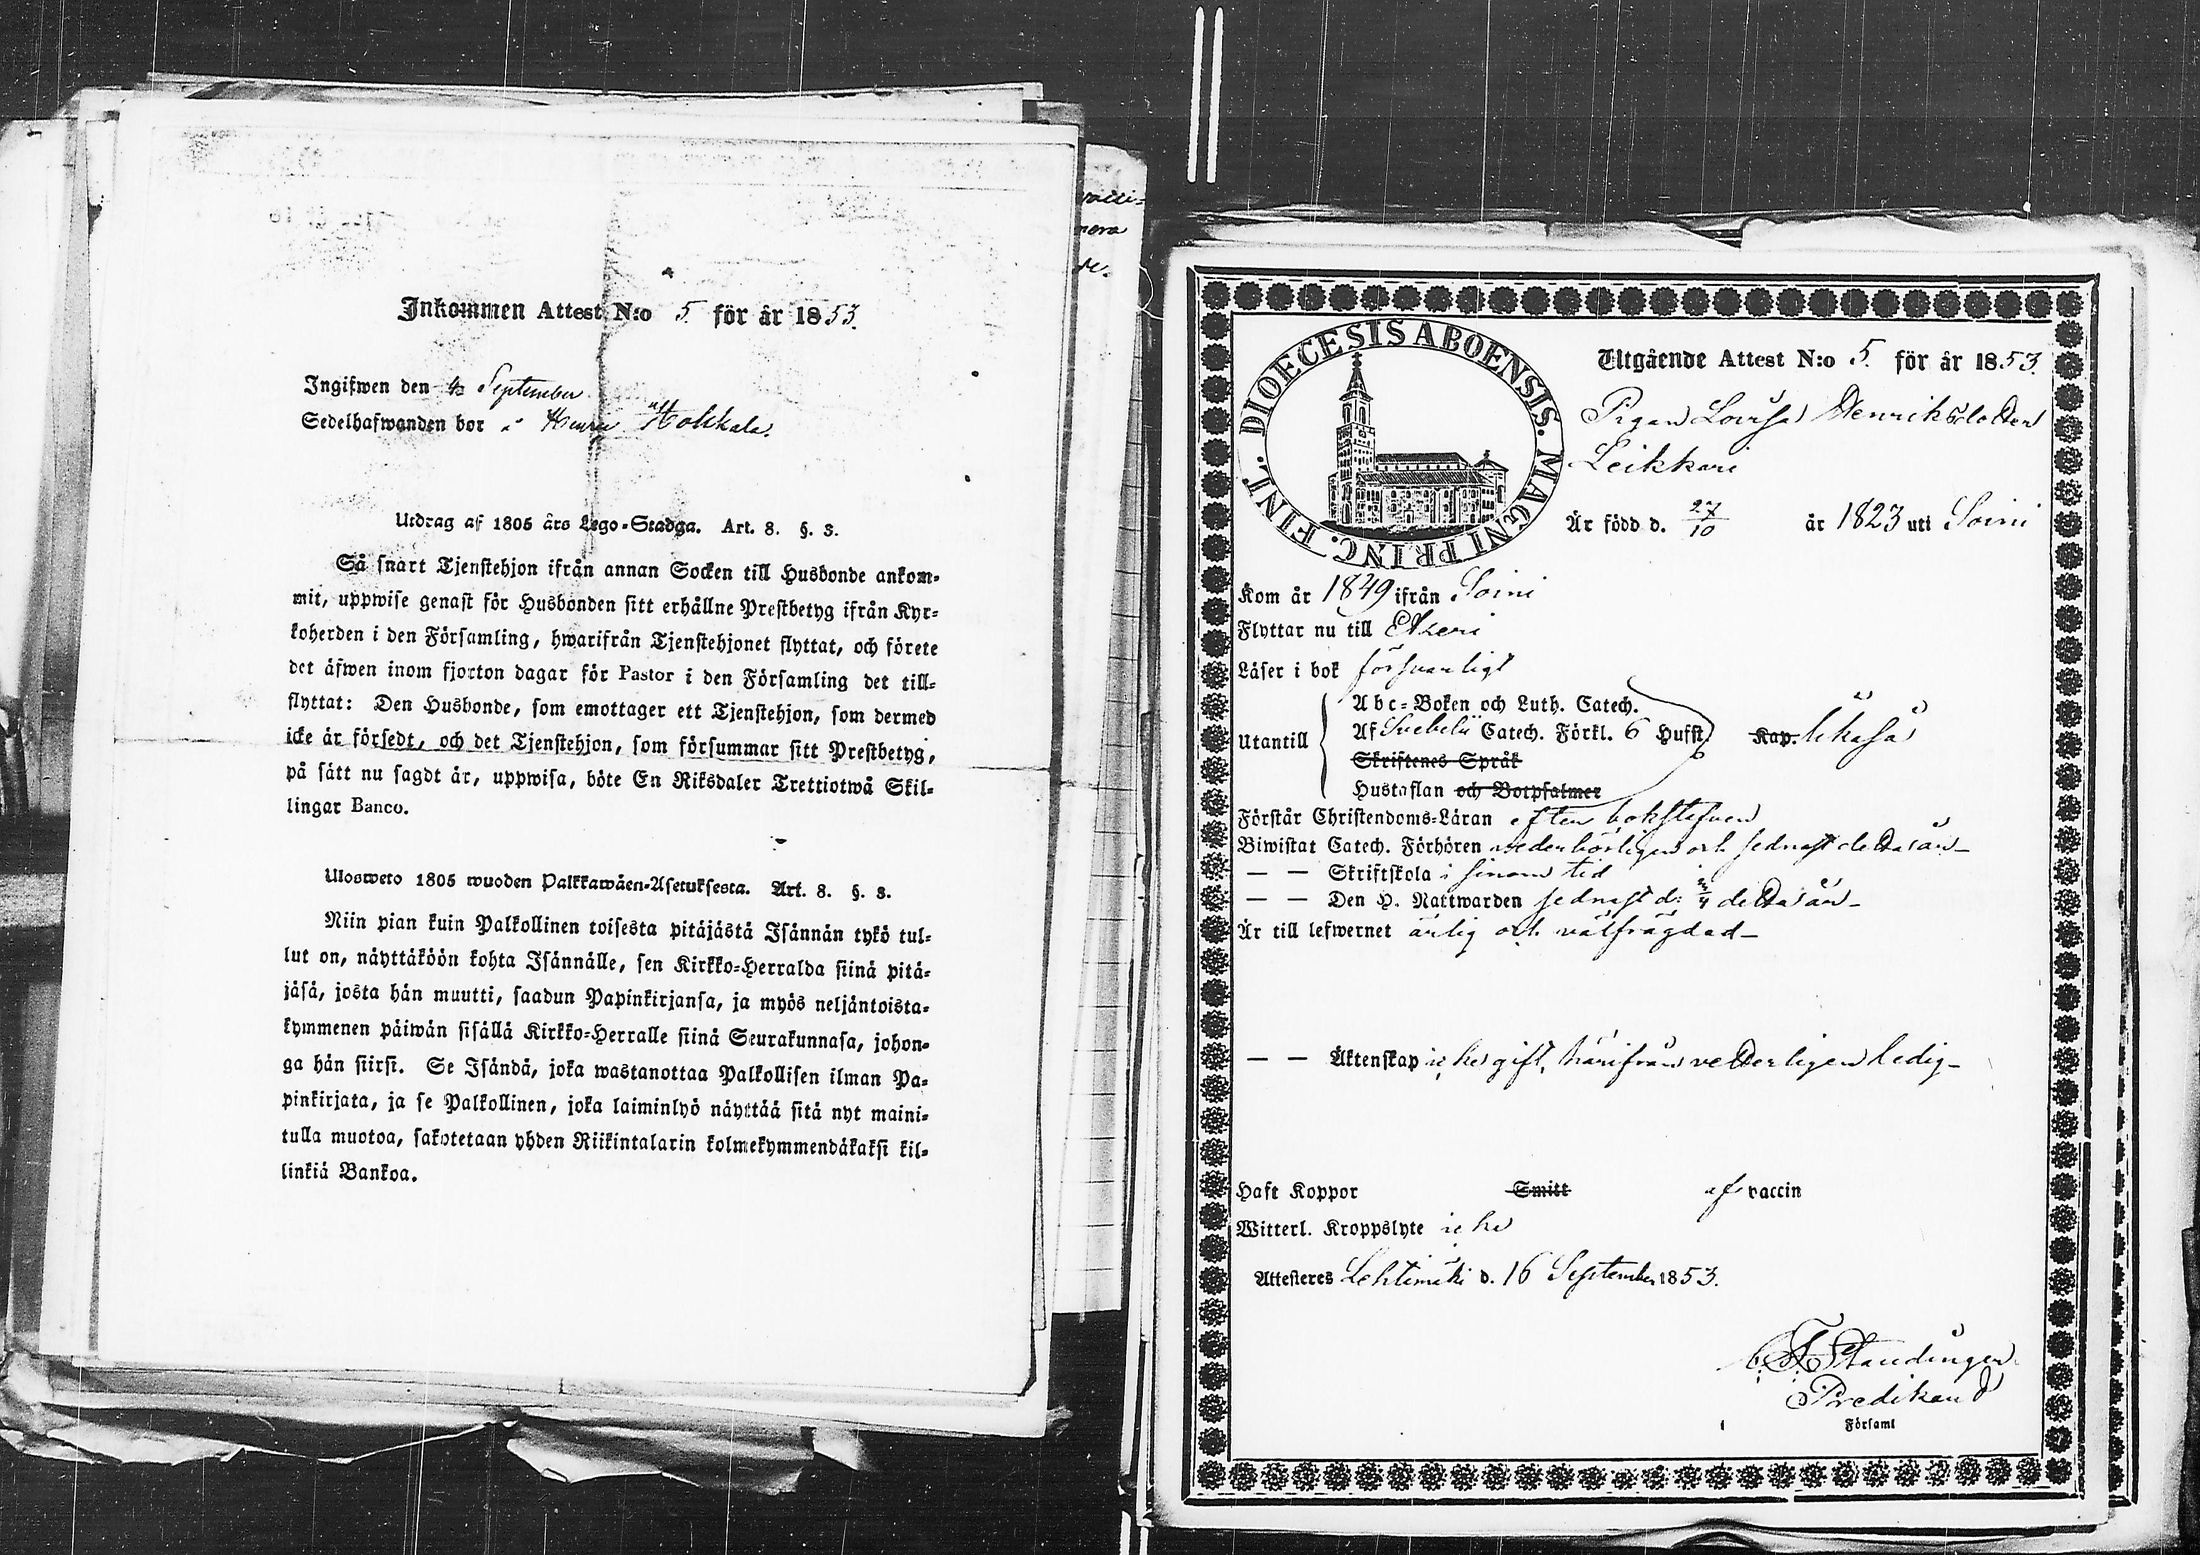 Inkommen Attest N:o 5. för år 1853.
Ingifwen den September
Sedelhafwanden bor Hokkala.
Utdrag af 1805 års Lego-Stadga. Art. 8. §. 3.
Så snart Tjenstehjon ifrån annan Socken till Husbonde ankom-
mit, uppwise genast för Husbonden sitt erhållne Prestbetyg ifrån Kyr-
koherden i den Församling, hwarifrån Tjenstehjonet flyttat, och förete
det äfwen inom fjorton dagar för Pastor i den Församling det till-
flyttat: Den Husbonde, som emottager ett Tjenstehjon, som dermed
icke är försedt, och det Tjenstehjon, som försummar sitt Prestbetyg,
på sätt nu sagdt är, uppwisa, böte En Riksdaler Trettiotwå Skil-
lingar Banco.
Ulosweto 1805 wuoden Palkkawäen-Asetuksesta. Art. 8. §. 3.
Niin pian kuin Palkollinen toisesta pitäjästä Isännän tykö tul-
lut on, näyttäköön kohta Isännälle, sen Kirkko-Herralda siinä pitä-
jäsä, josta hän muutti, saadun Papinkirjansa, ja myös neljäntoista-
kymmenen päiwän sisällä Kirkko-Herralle siinä Seurakunnasa, johon-
ga hän siirsi. Se Isändä, joka wastanottaa Palkollisen ilman Pa-
pinkirjata, ja se Palkollinen, joka laiminlyö näyttää sitä nyt maini-
tulla muotoa, sakotetaan yhden Riikintalarin kolmekymmendäkaksi kil-
linkiä Bankoa.
DIOECESIS ABOENSIS. MAGNI PRINC. FINL.
Utgående Attest N:o 5. för år 1853.
Pigan Lovisa Henriksdotter
Leikkari
Är född d. 27/10 år 1823 uti Soini
Kom år 1849 ifrån Soini
Flyttar nu till Etseri
Läser i bok försvarligt
Utantill
Abc-Boken och Luth. Catech.
Af Svebelii Catech. Förkl. 6 Hufst. Kap. likaså
Skriftenes Språk
Hustaflan och Botpsalmer
Förstår Christendoms-Läran efter bokstafven
Biwistat Catech. Förhören vederbörligen och sednast detta år
— — Skriftskola i sinom tid
— — Den H. Nattwarden sednast d: detta år
Är till lefwernet ärlig och välfrägdad
— — Äktenskap icke gift, härifrån vetterligen ledig
Haft Koppor Smitt af vaccin
Witterl. Kroppslyte icke
Attesteres Lehtimäki d. 16 September 1853.
Staudinger
Predikant
Församl